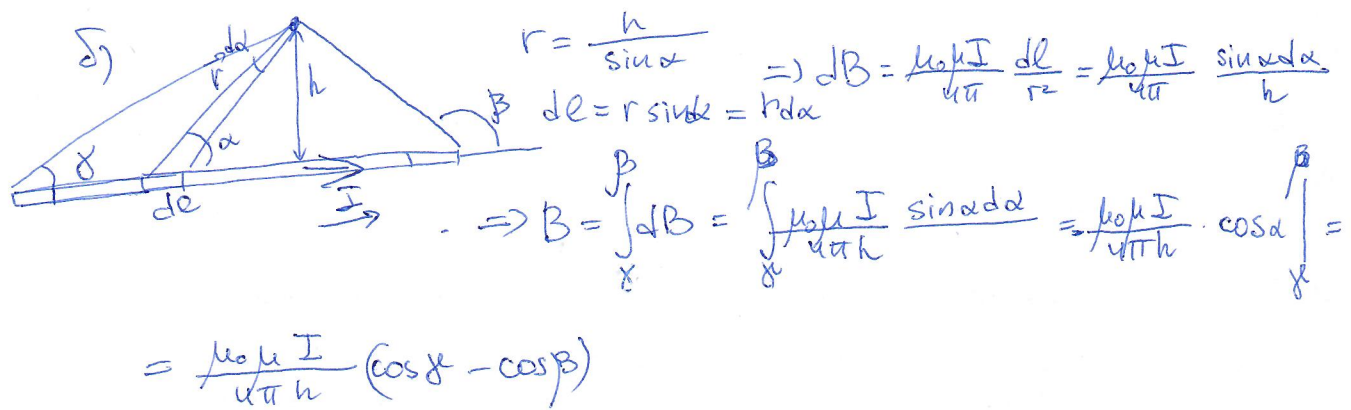 δ)
dα
r
h
γ
α
β
dl
I
r = h / sinα
dl = r sindα = r dα
=> dB = μ₀μI / 4π dl / r² = μ₀μI / 4π sinα dα / h
=> B = ∫_γ^β dB = ∫_γ^β μ₀μI / 4πh sinα dα = μ₀μI / 4πh · cosα |_γ^β =
= μ₀μI / 4πh (cosγ - cosβ)